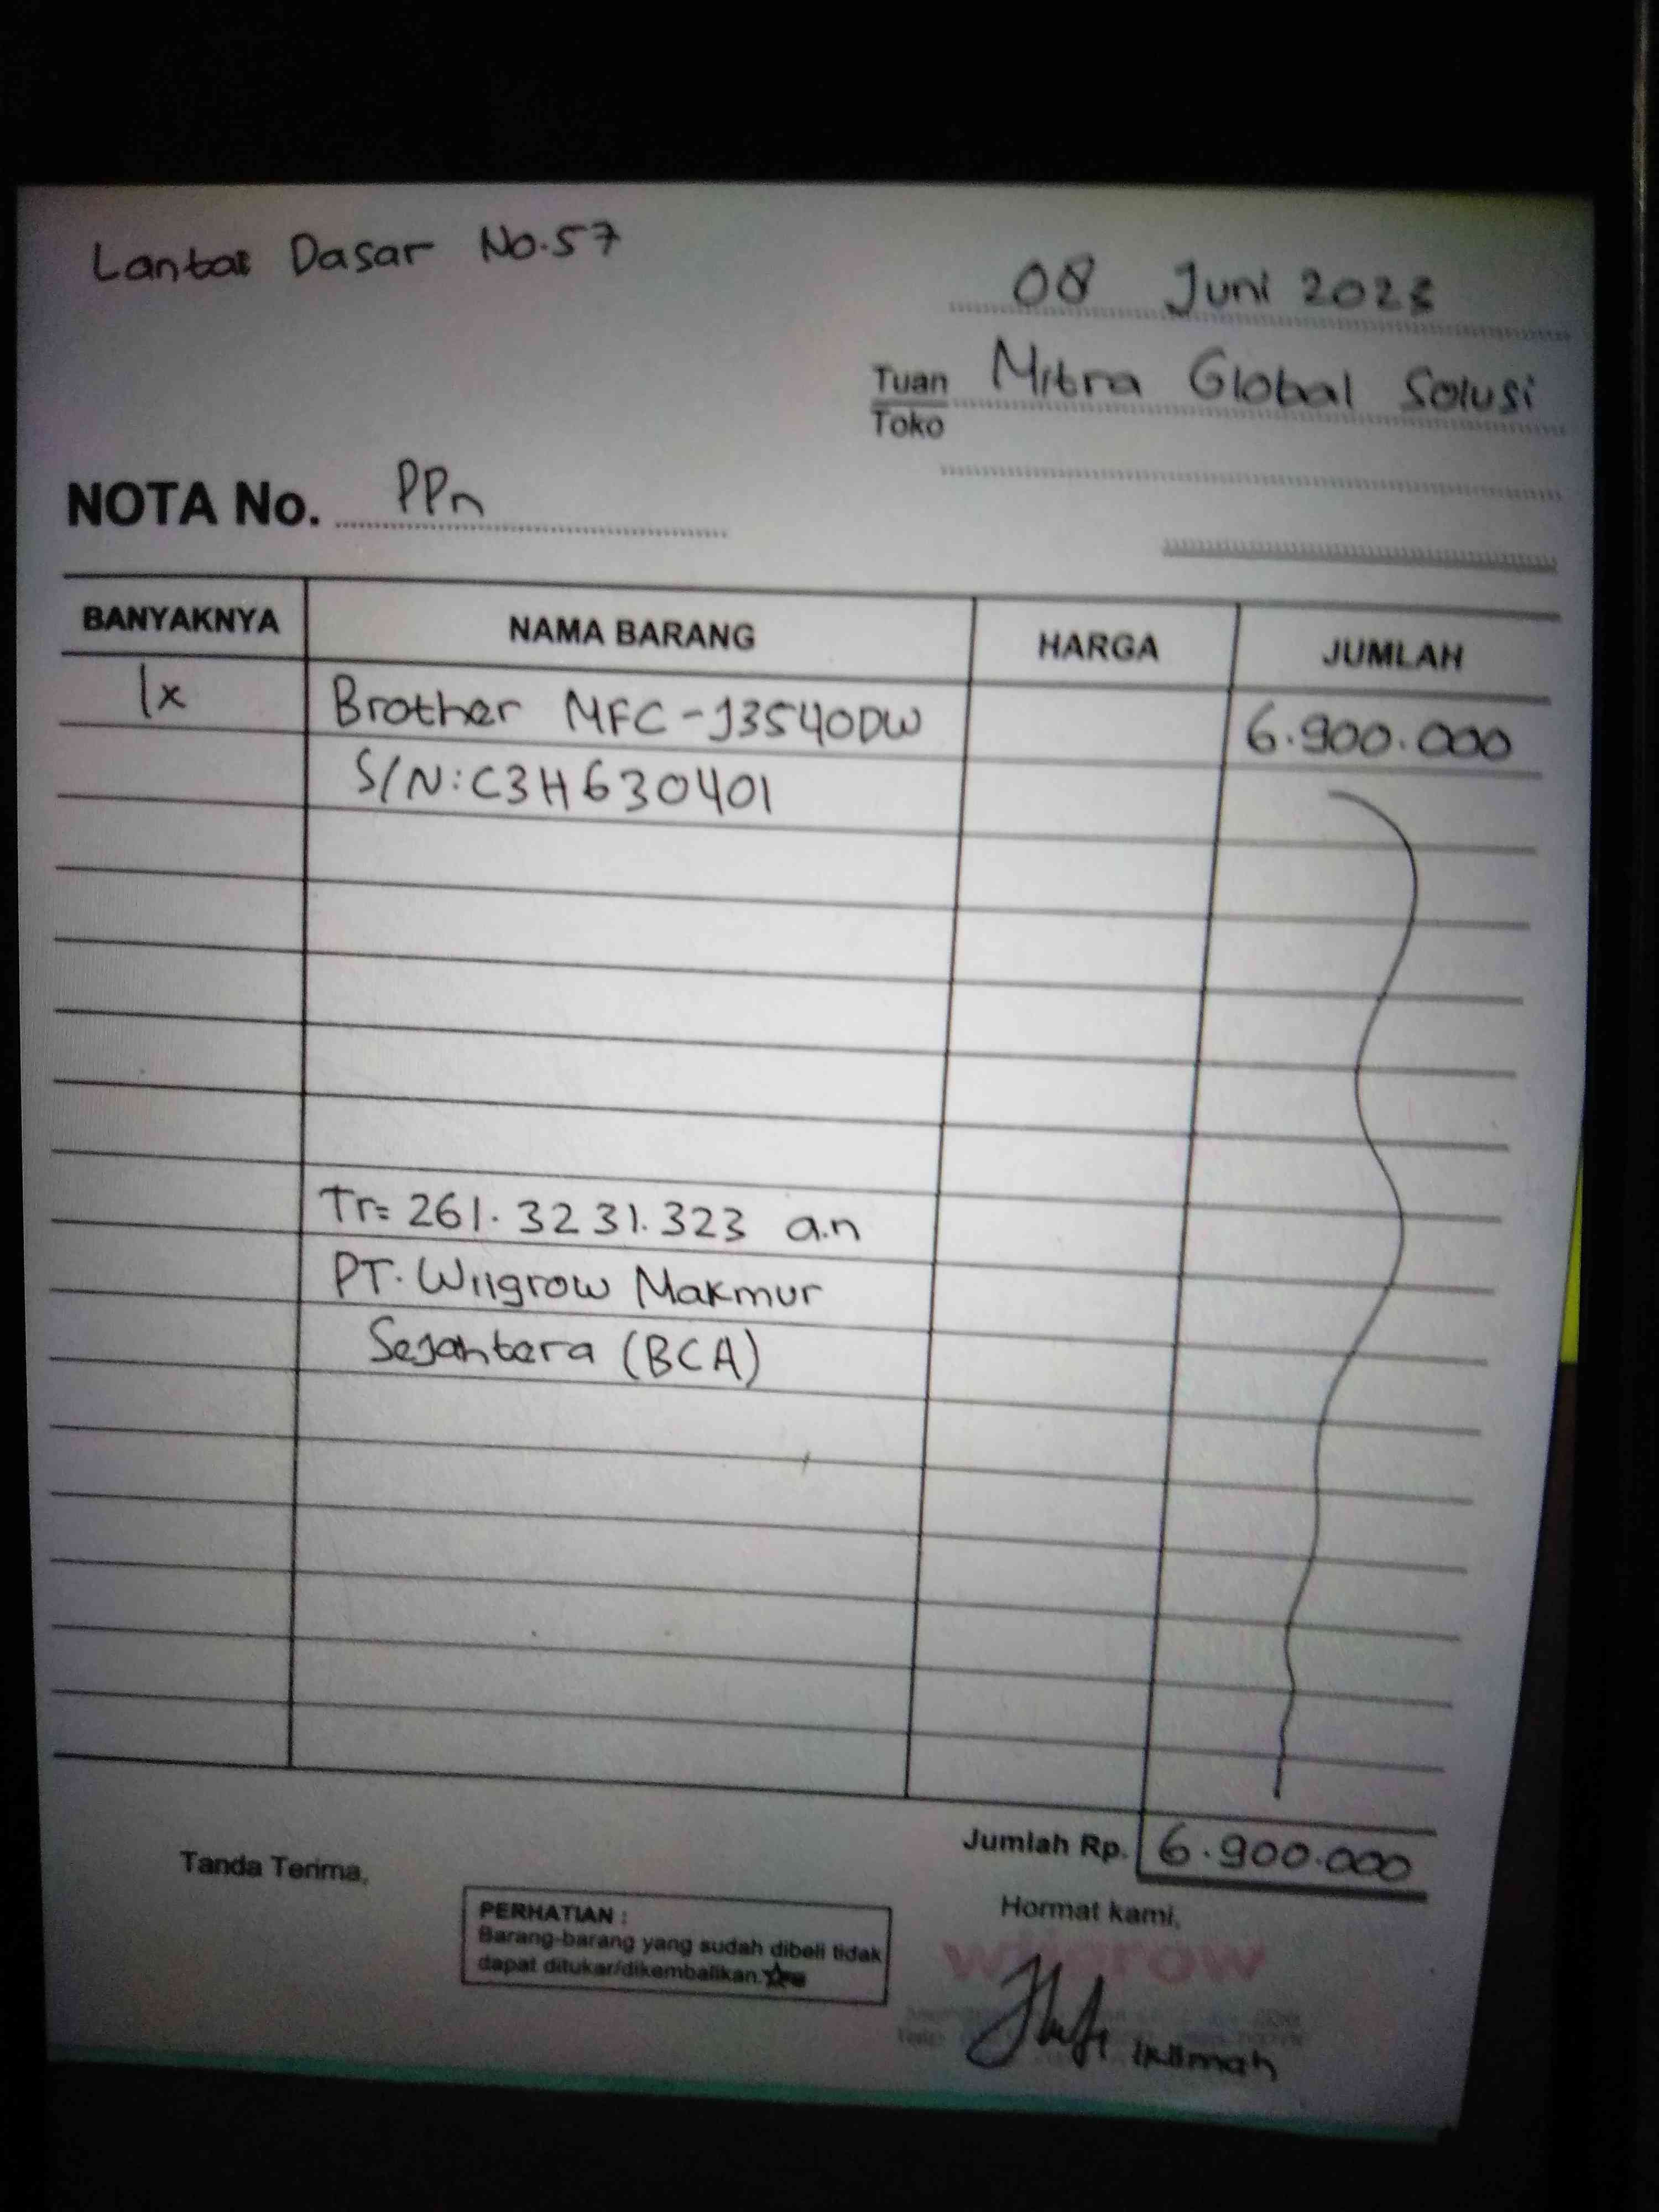 Lantai Dasar No.57
08 Juni 2023
Tuan Mitra Global Solusi
Toko
NOTA No. PPn
BANYAKNYA NAMA BARANG HARGA JUMLAH
1x Brother MFC-J3540DW 6.900.000
S/N:C3H630401
Tr= 261.3231.323 a.n
PT. Wiigrow Makmur
Sejahtera (BCA)
Jumlah Rp. 6.900.000
Tanda Terima,
Hormat kami,
PERHATIAN :
Barang-barang yang sudah dibeli tidak
dapat ditukar/dikembalikan.
wiigrow